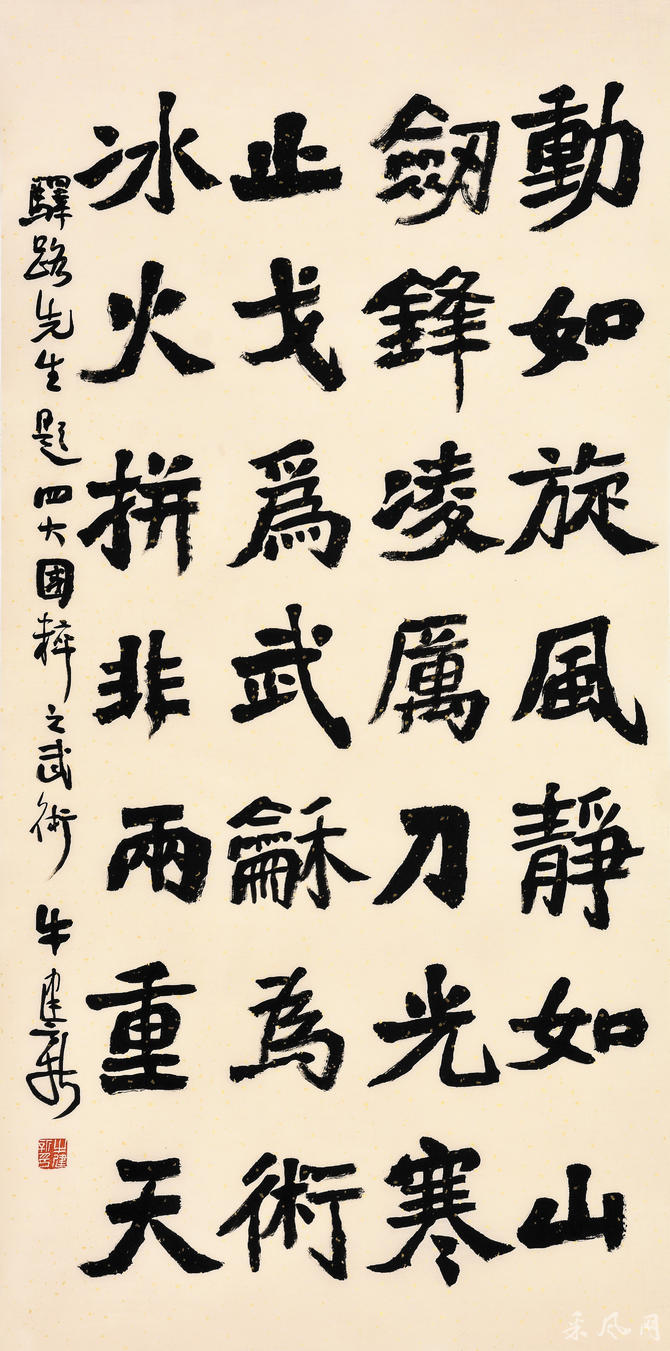 動如旋風靜如山
劒鋒凌厲刀光寒
止戈爲武龢為術
冰火拼非兩重天
驛路先生題四大國粹之武術 牛建新
牛建新印
采风网